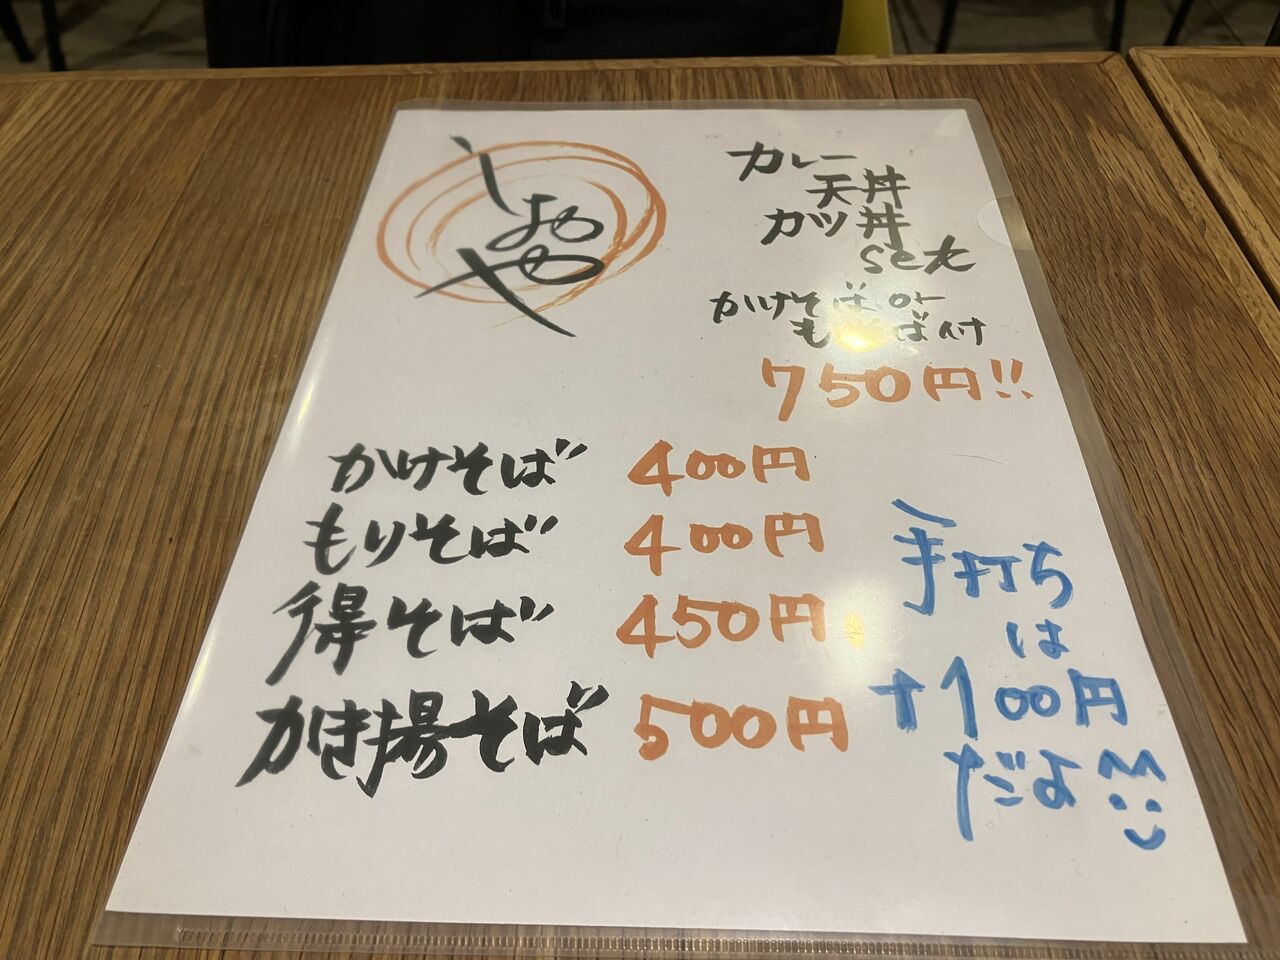 しおや
カレー
天丼
カツ丼
set
かけそば or
もりそば付
750円!!
かけそば 400円
もりそば 400円
得そば 450円
かき揚そば 500円
手打ち
は
↑100円
だよ